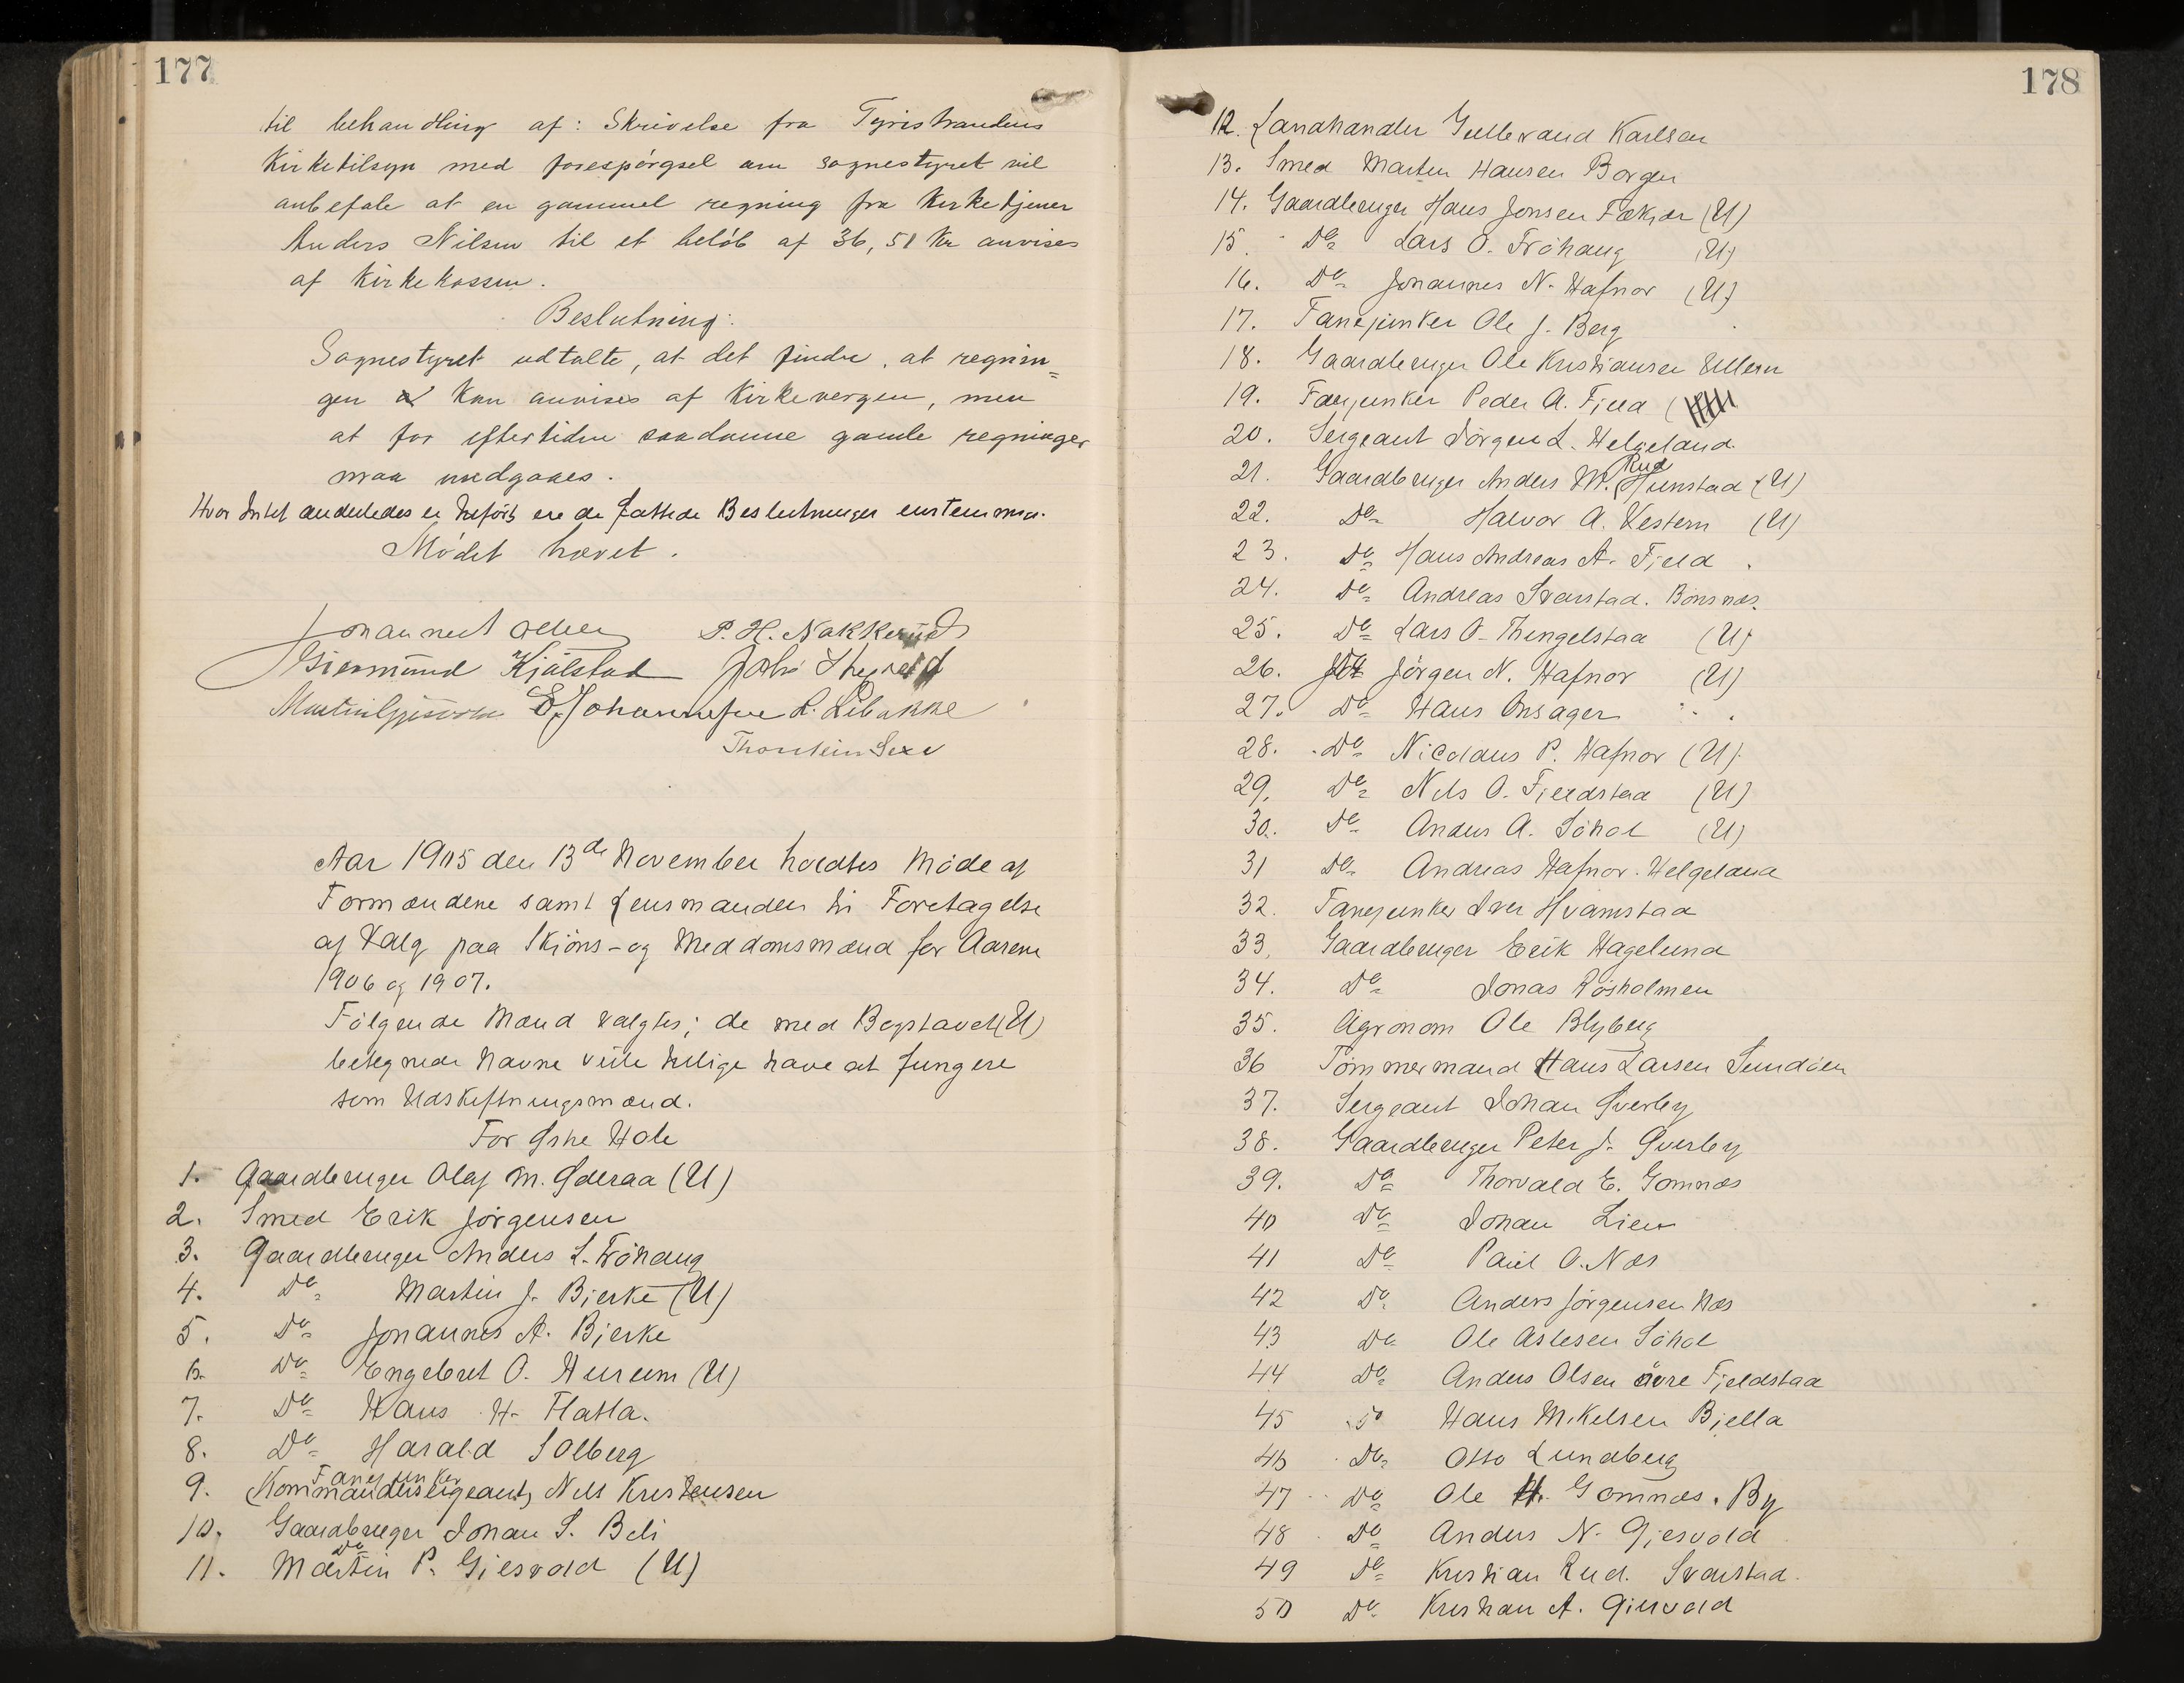 177
til behandling af: Skrivelse fra Tyristrandens
Kirketilsyn med forespörgsel om sognestyret vil
anbefale at en gammel regning fra Kirketjener
Anders Nilsen til et belöb af 36,51 Kr anvises
af Kirkekassen.
Beslutning:
Sognestyret udtalte, at det finder, at regnin=
gen kan anvises af Kirkevergen, men
at for eftertiden saadanne gamle regninger
maa undgaaes.
Hvor Intet anderledes er tilfört ere de fattede Beslutninger enstemmig.
Mödet hævet.
P. H. Nakkerud
Giermund Kjölstad
E. Johannesen L. Libakke
Thorstein Sexe
Aar 1905 den 13de November holdtes Möde af
Formændene samt Lensmanden til Foretagelse
af Valg paa Skjöns- og Meddomsmænd for Aarene
1906 og 1907.
Fölgende Mænd valgtes; de med Bogstavet (U)
betegnede Navne ville tillige have at fungere
som Udskiftningsmænd.
For Östre Hole
1. Gaardbruger Olaf M. Öderaa (U)
2. Smed Erik Jörgensen
3. Gaardbruger Anders L. Fröhaug
4. Do Martin J. Bjerke (U)
5. Do Johannes A. Bjerke
6. Do Engebret O. Hurum (U)
7. Do Hans H. Flatla.
8. Do Harald Solberg
Fanejunker
9. (Kommandersergeant) Nils Kristensen
10. Gaardbruger Johan S. Beli
Do
11. Martin P. Giesvold (U)
178
12. Landhandler Gulbrand Karlsen
13. Smed Marten Hansen Borgen
14. Gaardbruger Hans Jonsen Fækjær (U)
15. Do Lars O. Fröhaug (U)
16. Do Johannes N. Hafnor (U)
17. Fanejunker Ole J. Berg
18. Gaardbruger Ole Kristiansen Ullern
19. Fanejunker Peder A. Fjeld
20. Sergeant Jörgen L. Helgeland
Rud
21. Gaardbruger Anders M. Hunstad (U)
22. Do Halvor A. Vestern (U)
23. Do Hans Andreas A. Fjeld
24. Do Andreas Svarstad. Bönsnæs.
25. Do Lars O. Thingelstad (U)
26. Jörgen N. Hafnor (U)
27. Do Hans Onsager
28. Do Nicolaus P. Hafnor (U)
29. Do Nils O. Fjeldstad (U)
30. Do Anders A. Söhol (U)
31 Do Andreas Hafnor. Helgeland
32. Fanejunker Iver Hvamstad
33. Gaardbruger Erik Hagelund
34. Do Jonas Rösholmen
35. Agronom Ole Blyberg
36 Tömmermand Hans Larsen Sundöen
37. Sergeant Johan Överby
38. Gaardbruger Peter J. Överby
39. Do Thorvald E. Gomnæs
40 Do Johan Lien
41 Do Paul O. Næs
42 Do Anders Jörgensen Næs
43 Do Ole Aslesen Söhol
44 Do Anders Olsen övre Fjeldstad
45 Do Hans Mikelsen Bjella
46 Do Otto Lundberg
47 Do Ole H. Gomnæs. By
48 Do Anders N. Gjesvold
49 Do Kristian Rud. Svarstad.
50 Do Kristian A. Giesvold